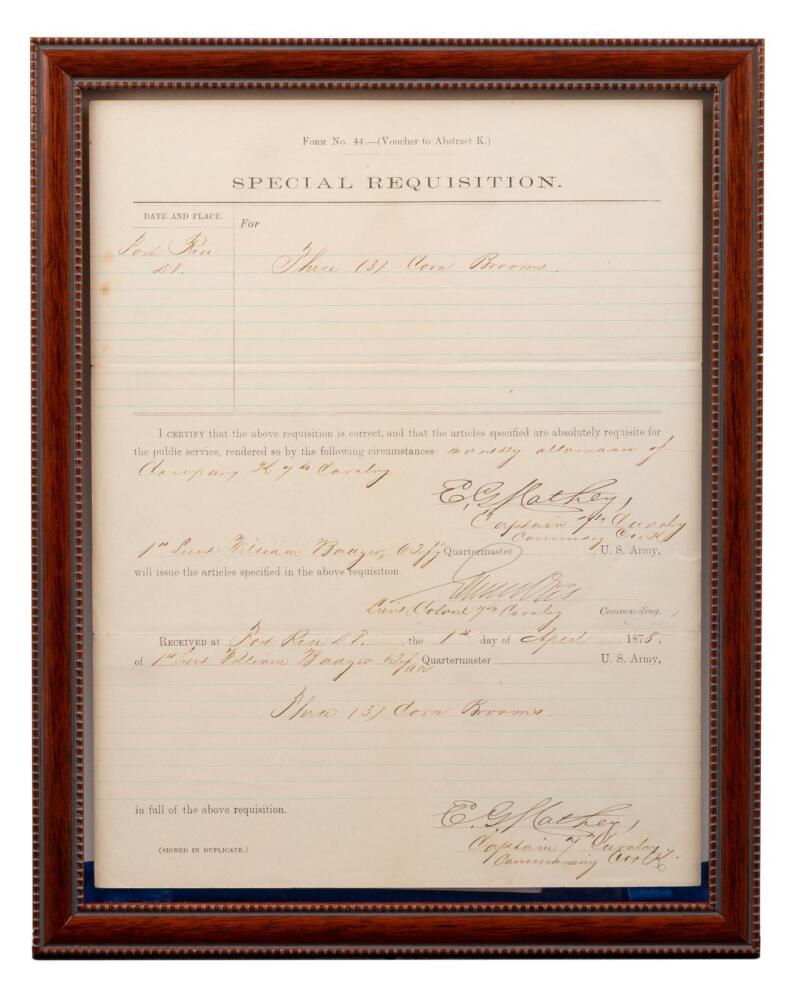 FORM NO. 44.—(Voucher to Abstract K.)
SPECIAL REQUISITION.
DATE AND PLACE.
For
Fort Rice
D.T.
Three (3) Corn Brooms.
I CERTIFY that the above requisition is correct, and that the articles specified are absolutely requisite for
the public service, rendered so by the following circumstances: monthly allowance of
Company K 7th Cavalry
E. G. Mathey,
Captain 7th Cavalry
Commdg Co. K
1st Lieut William Badger, 6 Inf'y Quartermaster, U. S. Army,
will issue the articles specified in the above requisition.
Lieut. Colonel 7th Cavalry Commanding.
RECEIVED at Fort Rice D.T., the 1st day of April 1878,
of 1st Lieut William Badger Quartermaster U. S. Army,
Three (3) Corn Brooms.
in full of the above requisition.
E. G. Mathey,
Captain 7th Cavalry.
Commanding Co. K.
(SIGNED IN DUPLICATE.)